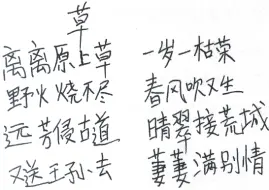 草
离离原上草 一岁一枯荣
野火烧不尽 春风吹又生
远芳侵古道 晴翠接荒城
又送王孙去 萋萋满别情